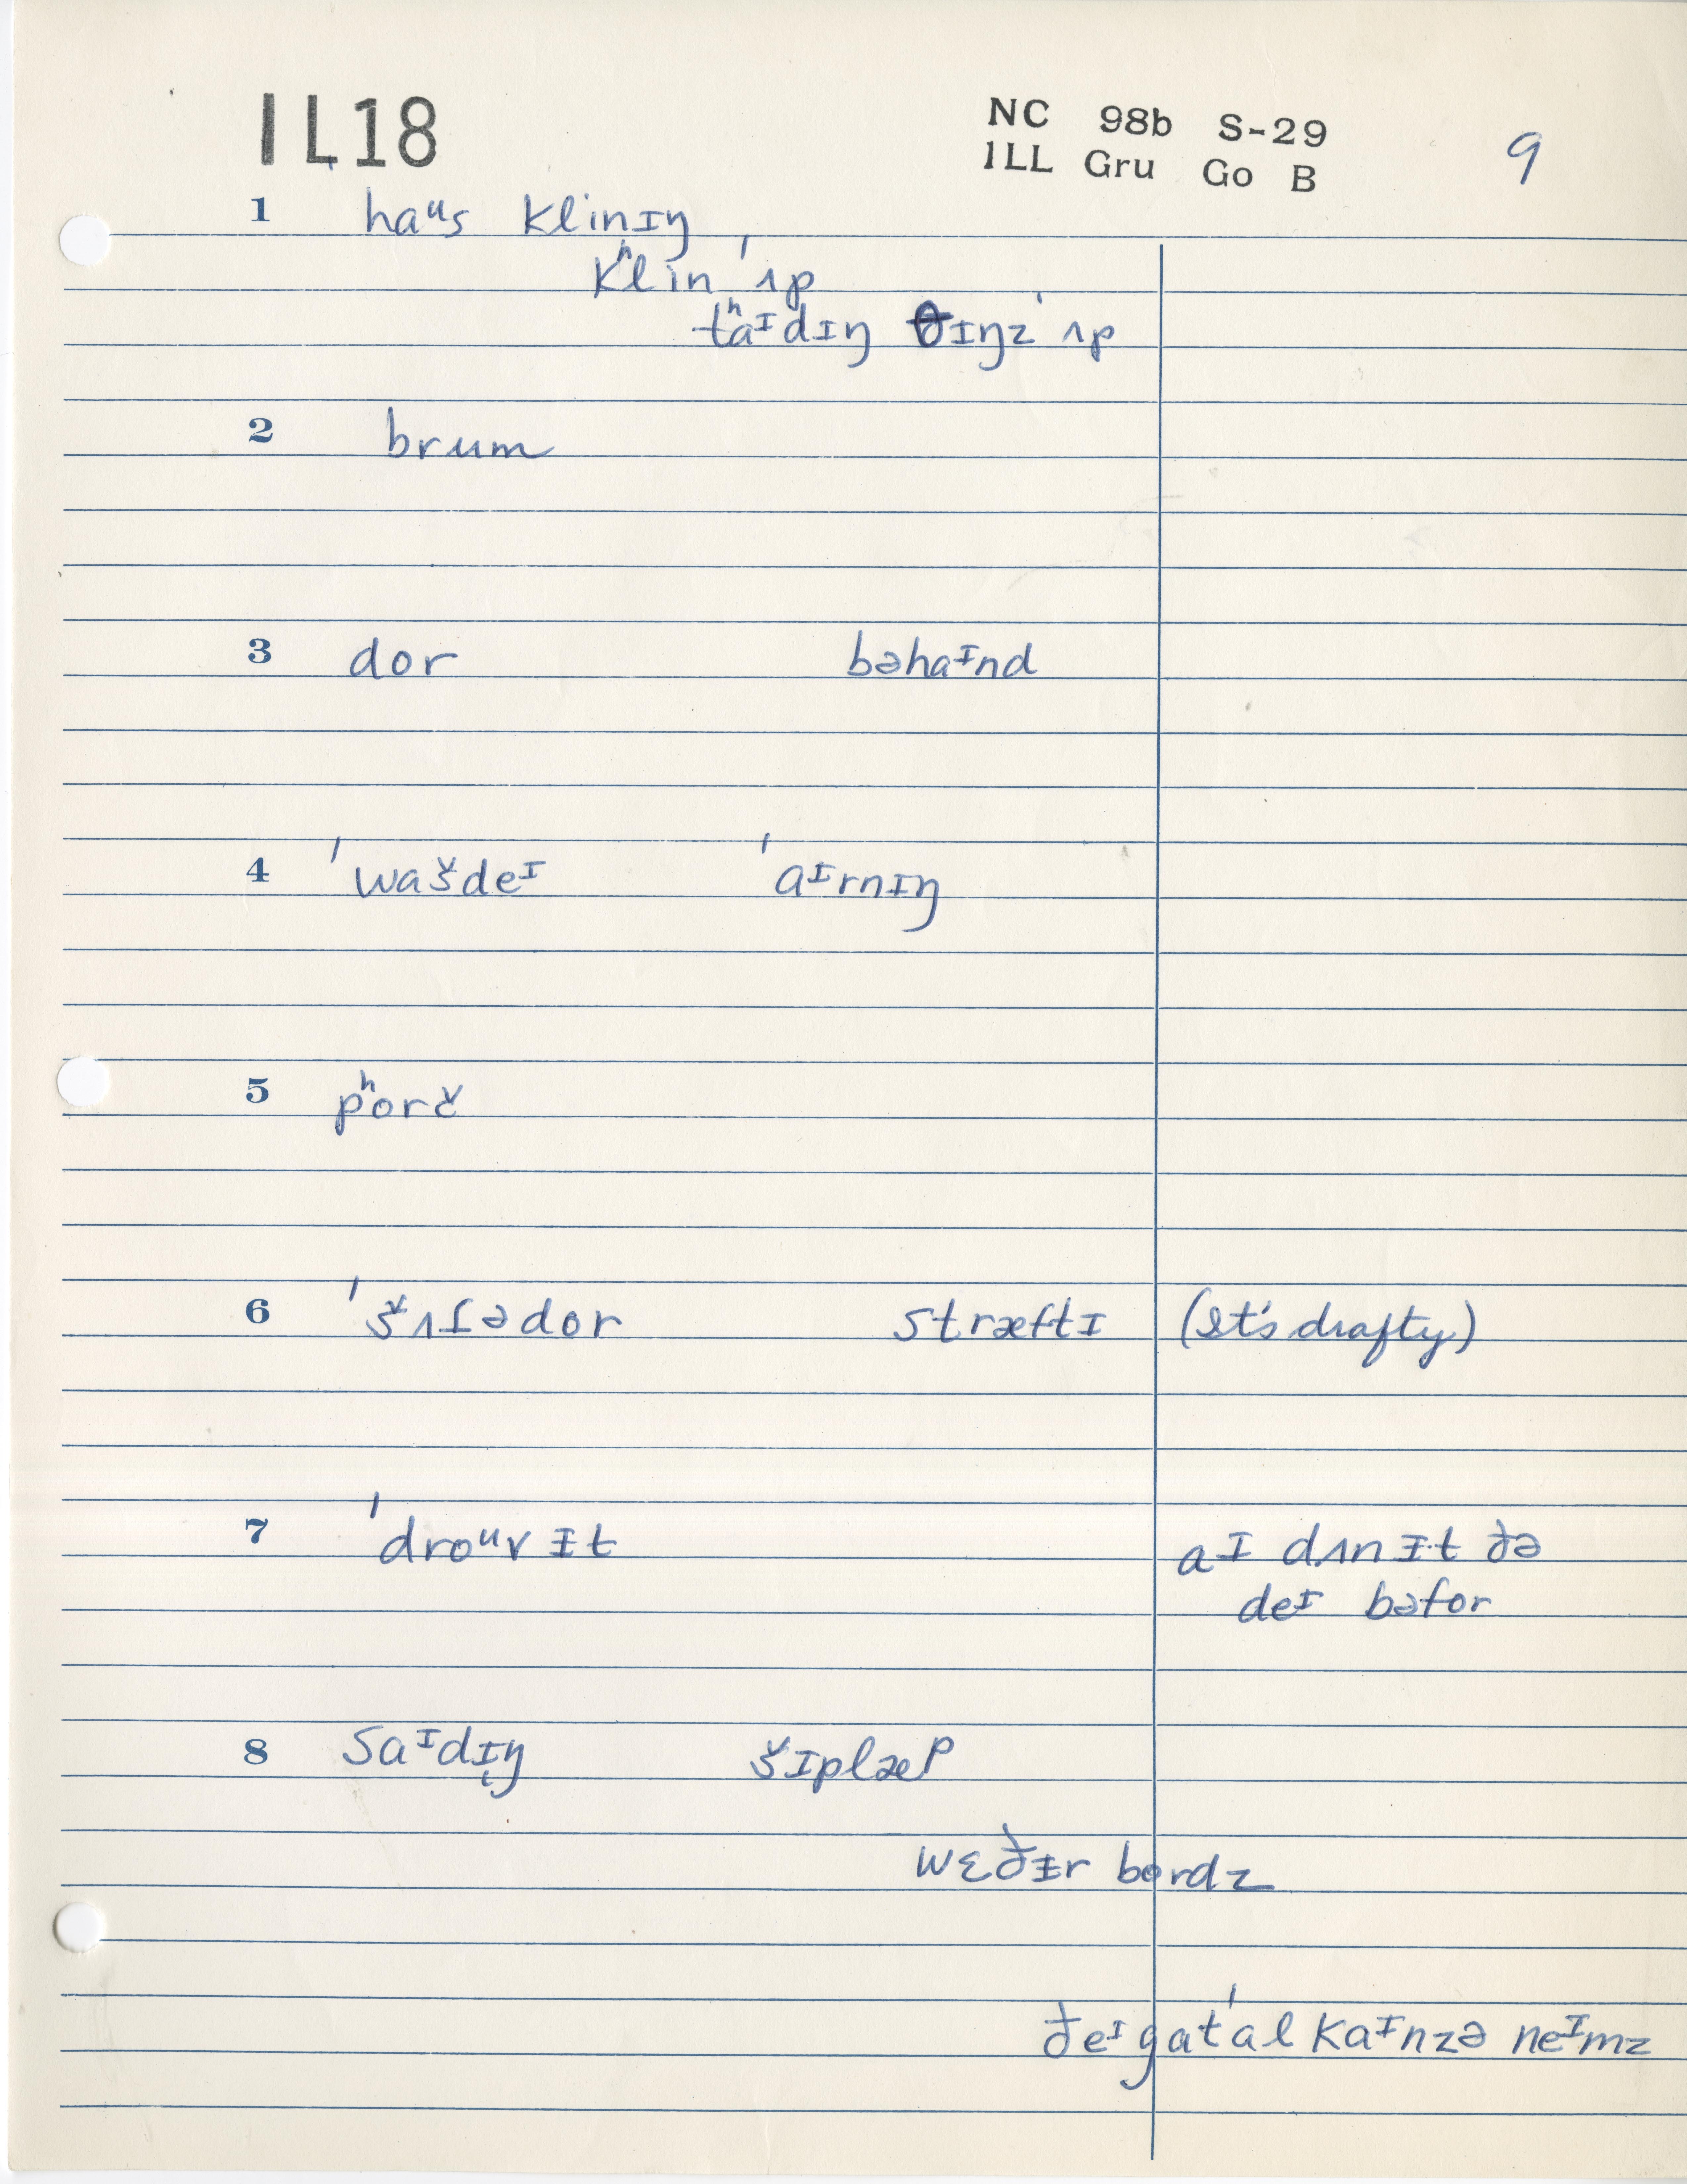 IL18
NC 98b S-29
ILL Gru Go B
9
1 haᵘs klinɪŋ
kʰlin ˈʌp
tʰaᶦdɪŋ θɪŋz ˈʌp
2 brum
3 dor bəhaᶦnd
4 ˈwašdeᶦ ˈaᶦrnɪŋ
5 pʰorč
6 ˈšʌɾədor stræftɪ (It's drafty)
7 ˈdroᵘv ɪt aᶦ dʌn ɪt ðə
deᶦ bəfor
8 saᶦdɪŋ šɪplæp
wɛðɨr bordz
ðeᶦ gat ˈal kaᶦnzə neᶦmz